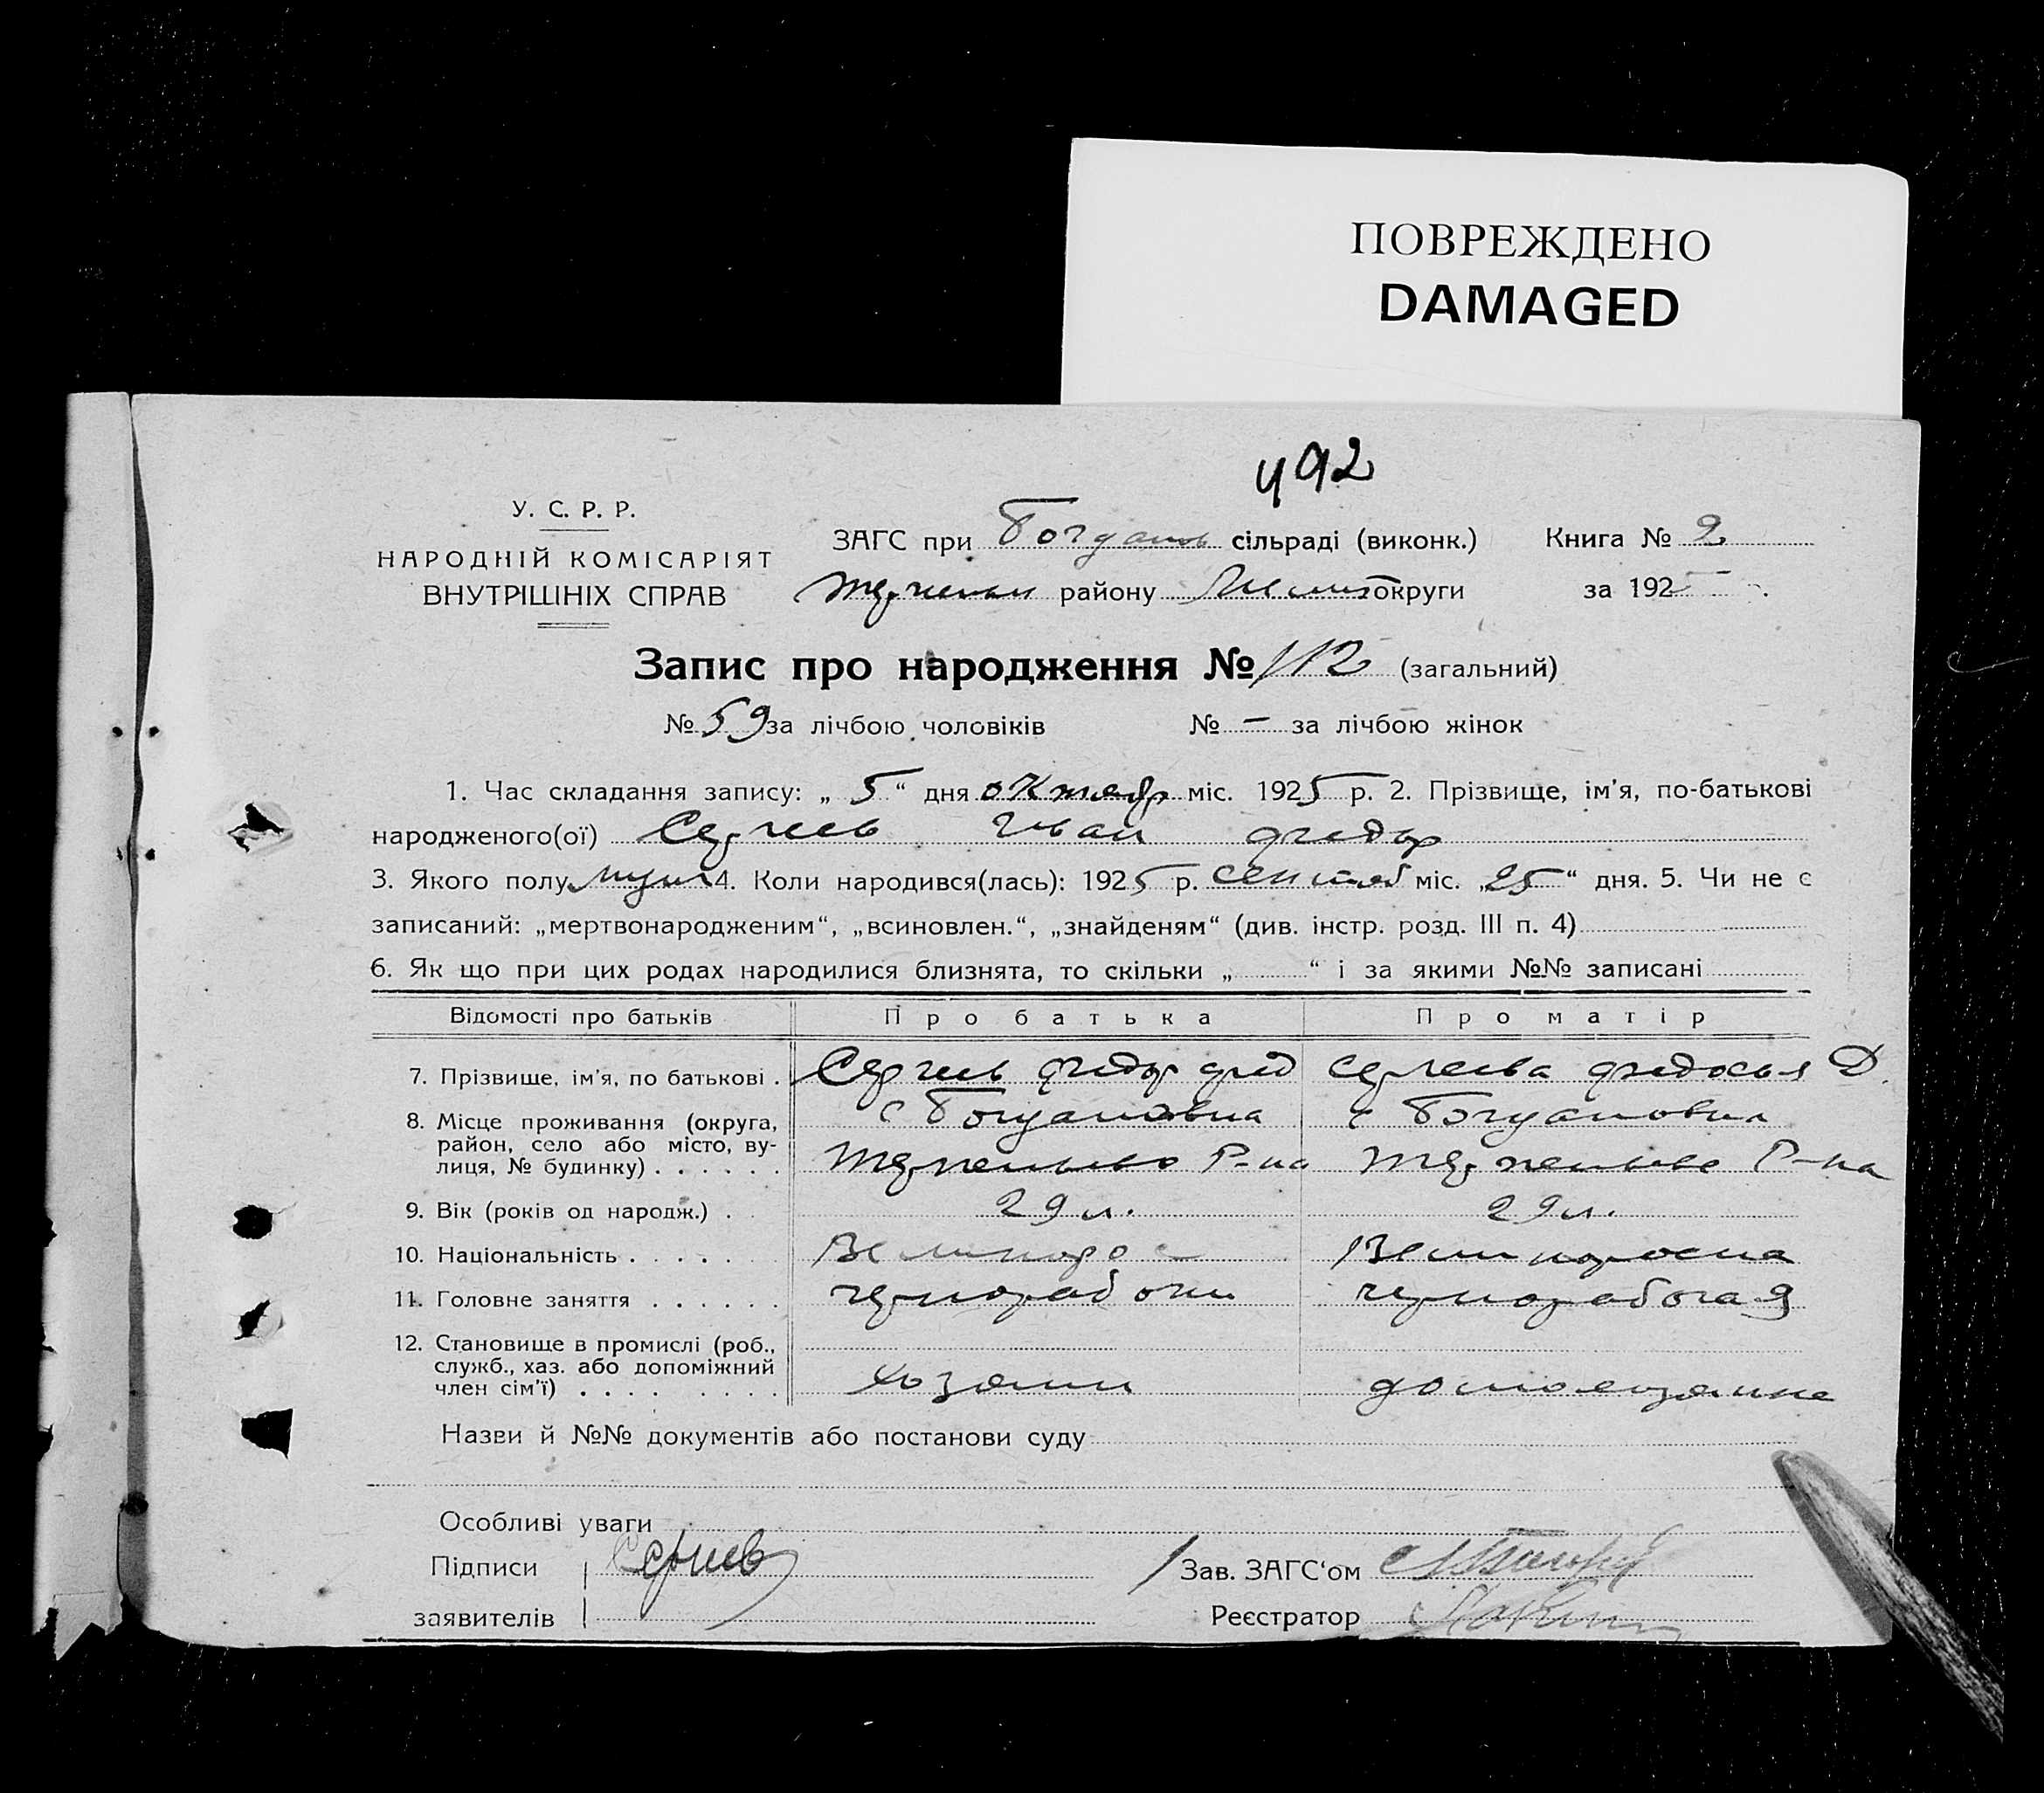 ПОВРЕЖДЕНО
DAMAGED
492
У. С. Р. Р.
НАРОДНІЙ КОМІСАРІЯТ
ВНУТРІШНІХ СПРАВ
ЗАГС при Богданов сільраді (виконк.) Книга № 2
району округи за 1925
Запис про народження № 112 (загальний)
№ 59 за лічбою чоловіків № – за лічбою жінок
1. Час складання запису: „ 5 “ дня октябр міс. 1925 р. 2. Прізвище, ім'я, по-батькові
народженого(ої) Сергеев Иван Федор
3. Якого полу муж 4. Коли народився(лась): 1925 р. сентяб міс. „25“ дня. 5. Чи не є
записаний: „мертвонародженим“, „всиновлен.“, „знайденям“ (див. інстр. розд. III п. 4)
6. Як що при цих родах народилися близнята, то скільки „ “ і за якими №№ записані
Відомості про батьків Про батька Про матір
7. Прізвище, ім'я, по батькові . Сергеев Федор Сергеева Федосья Д.
8. Місце проживання (округа, с Богдановка с Богдановка
район, село або місто, ву-
лиця, № будинку) . . . . . . Р-на Р-на
9. Вік (років од народж.) . 29 л. 29 л.
10. Національність . . . . . Великорос Великороска
11. Головне заняття . . . . . . чернорабочи чернорабочая
12. Становище в промислі (роб.,
служб., хаз. або допоміжний
член сім'ї) . . . . . . . . хозяин домохозяйка
Назви й №№ документів або постанови суду
Особливі уваги
Підписи Сергиев / Зав. ЗАГС'ом
заявителів Реєстратор